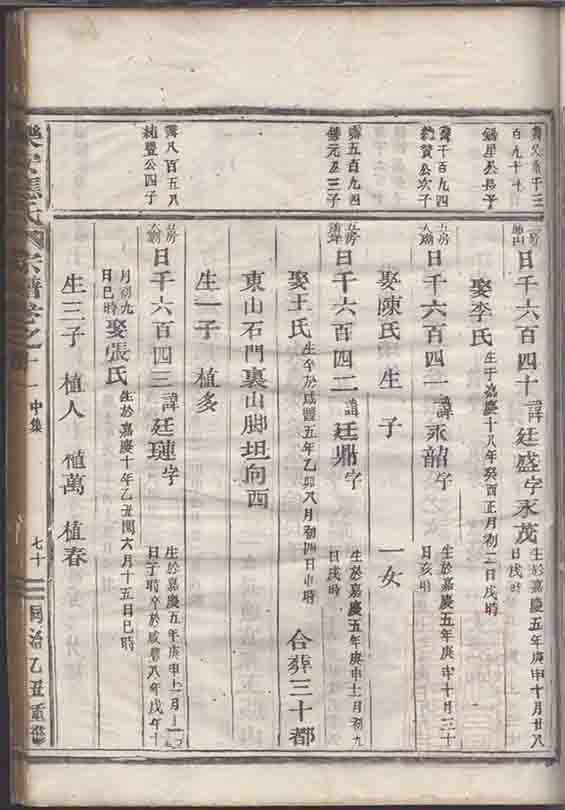 日千六百四十 諱廷盛字永茂 生於嘉慶五年庚申十月廿八日戌時
娶李氏 生于嘉慶十八年癸酉正月初二日戌時
千百九四
贊公次子
日千六百四一 諱永韶字 生於嘉慶五年庚申十月三十日亥時
娶陳氏 生 子 一女
五百九四
元公三子
日千六百四二 諱廷鼎字 生於嘉慶五年庚申十一月初九日戌時
娶王氏 生卒於咸豐五年乙卯八月初四日申時 合葬三十都
東山石門裏山脚坦向西
生一子 植多
八百五八
純豐公四子
日千六百四三 諱廷璉字 生於嘉慶五年庚申十一月十一日子時卒於咸豐八年戊午十
月初九日巳時 娶張氏 生於嘉慶十年乙丑閏六月十五日巳時
生三子 植人 植萬 植春
氏宗譜卷之 中集 七十 同治乙丑重修